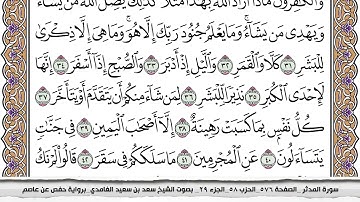 وَٱلْكَٰفِرُونَ مَاذَآ أَرَادَ ٱللَّهُ بِهَٰذَا مَثَلًا كَذَٰلِكَ يُضِلُّ ٱللَّهُ مَن يَشَآءُ
وَيَهْدِى مَن يَشَآءُ وَمَا يَعْلَمُ جُنُودَ رَبِّكَ إِلَّا هُوَ وَمَا هِىَ إِلَّا ذِكْرَىٰ
لِلْبَشَرِ ٣١ كَلَّا وَٱلْقَمَرِ ٣٢ وَٱلَّيْلِ إِذْ أَدْبَرَ ٣٣ وَٱلصُّبْحِ إِذَآ أَسْفَرَ ٣٤ إِنَّهَا
لَإِحْدَى ٱلْكُبَرِ ٣٥ نَذِيرًا لِّلْبَشَرِ ٣٦ لِمَن شَآءَ مِنكُمْ أَن يَتَقَدَّمَ أَوْ يَتَأَخَّرَ ٣٧
كُلُّ نَفْسٍۭ بِمَا كَسَبَتْ رَهِينَةٌ ٣٨ إِلَّآ أَصْحَٰبَ ٱلْيَمِينِ ٣٩ فِى جَنَّٰتٍ
يَتَسَآءَلُونَ ٤٠ عَنِ ٱلْمُجْرِمِينَ ٤١ مَا سَلَكَكُمْ فِى سَقَرَ ٤٢ قَالُوا۟ لَمْ نَكُ
سورة المدثر _الصفحة ٥٧٦_ الحزب ٥٨_ الجزء ٢٩ _ بصوت الشيخ سعد بن سعيد الغامدي_برواية حفص عن عاصم